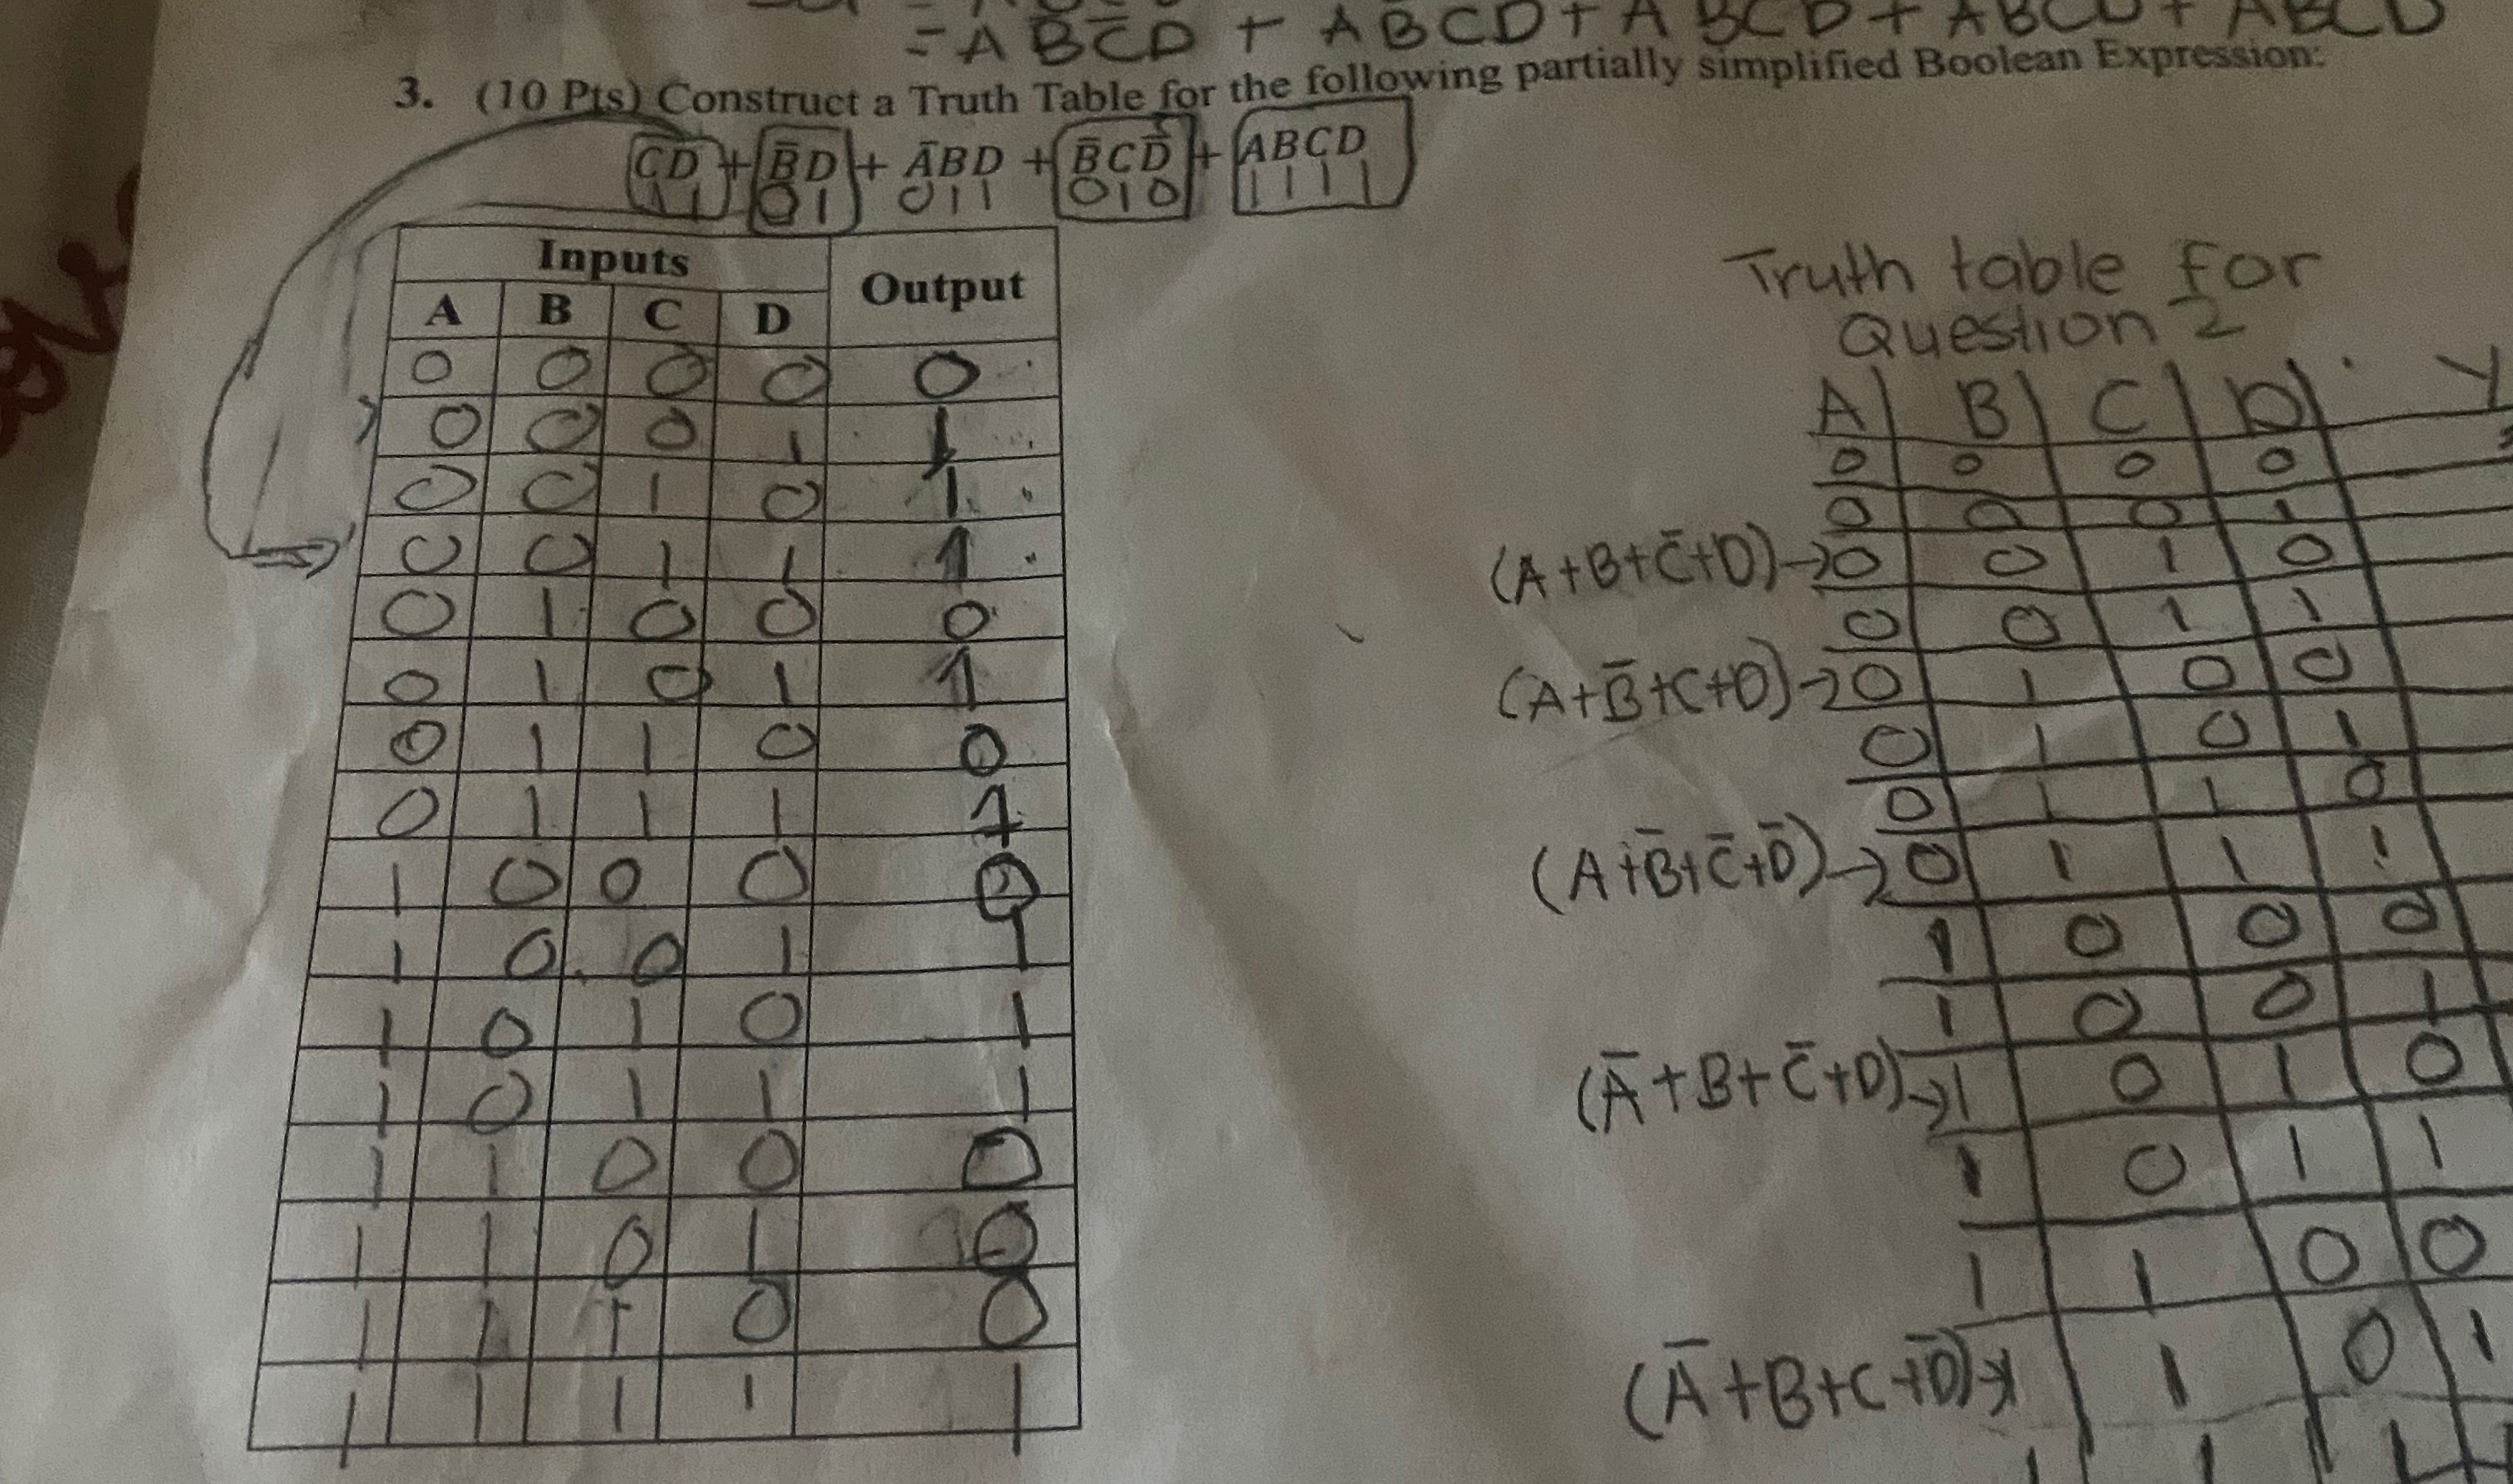 = A B̄ C̄ D + A B̄ C D + A B C D + A B C D + A B C D
3. (10 Pts) Construct a Truth Table for the following partially simplified Boolean Expression:
CD + B̄D + ĀBD + B̄CD̄ + ABCD
1 1 0 1 0 1 1 0 1 0 1 1 1 1
Inputs Output
A B C D
0 0 0 0 0
0 0 0 1 1
0 0 1 0 1
0 0 1 1 1
0 1 0 0 0
0 1 0 1 1
0 1 1 0 0
0 1 1 1 1
1 0 0 0 0
1 0 0 1 1
1 0 1 0 1
1 0 1 1 1
1 1 0 0 0
1 1 0 1 0
1 1 1 0 0
1 1 1 1 1
Truth table for
Question 2
A B C D Y
0 0 0 0
0 0 0 1
(A+B+C̄+D)→0 0 1 0
0 0 1 1
(A+B̄+C+D)→0 1 0 0
0 1 0 1
0 1 1 0
(A+B̄+C̄+D̄)→0 1 1 1
1 0 0 0
1 0 0 1
(Ā+B+C̄+D)→1 0 1 0
1 0 1 1
1 1 0 0
(Ā+B+C+D̄)→1 1 0 1
1 1 1